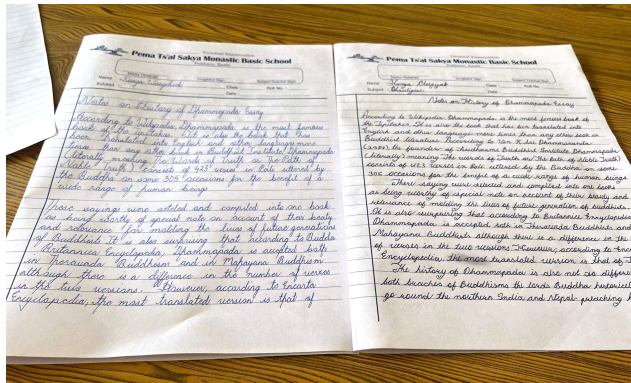 Pema Ts'al Sakya Monastic Basic School
Name
Subject
Class
Roll No.
Date
Notes on History of Dhammapada Essay
According to Wikipedia, Dhammapada is the most famous
book of the Tipitakas. It is also the book that has
been translated into English and other languages more
times than any other book in Buddhist literature.
Dhammapada
(literally meaning The Words of Truth or The Path of
Truth) consists of 423 verses in Pali uttered by
the Buddha on some 305 occasions for the benefit of a
wide range of human beings
These sayings were selected and compiled into one book
as being worthy of special note on account of their beauty
and relevance for molding the lives of future generations
of Buddhists. It is also surprising that according to
Britannica Encyclopedia, Dhammapada is accepted both
in Theravada Buddhism and in Mahayana Buddhism
although there is a difference in the number of verses
in the two versions. However, according to Encarta
Encyclopedia, the most translated version is that of
Pema Ts'al Sakya Monastic Basic School
Name
Subject
Class
Roll No.
Date
Notes on History of Dhammapada Essay
According to Wikipedia, Dhammapada is the most famous book of
the Tipitakas. It is also the book that has been translated into
English and other languages more times than any other book in
Buddhist literature. According to Ven.
the founder of Buddhist Institute, Dhammapada
(literally meaning The Words of Truth or The Path of Truth)
consists of 423 verses in Pali uttered by the Buddha on some
305 occasions for the benefit of a wide range of human beings.
These saying were selected and compiled into one book
as being worthy of especial note on account of their beauty and
relevance of molding the lives of future generation of Buddhists.
It is also surprising that according to Britannica Encyclopedia
Dhammapada is accepted both in Theravada Buddhism and
Mahayana Buddhism although there is a difference in the
of verses in the two versions. However, according to
Encyclopedia the most translated version is that of
The history of Dhammapada is also not
both of Buddhisms the lords Buddha
go round the northern India and Nepal preaching